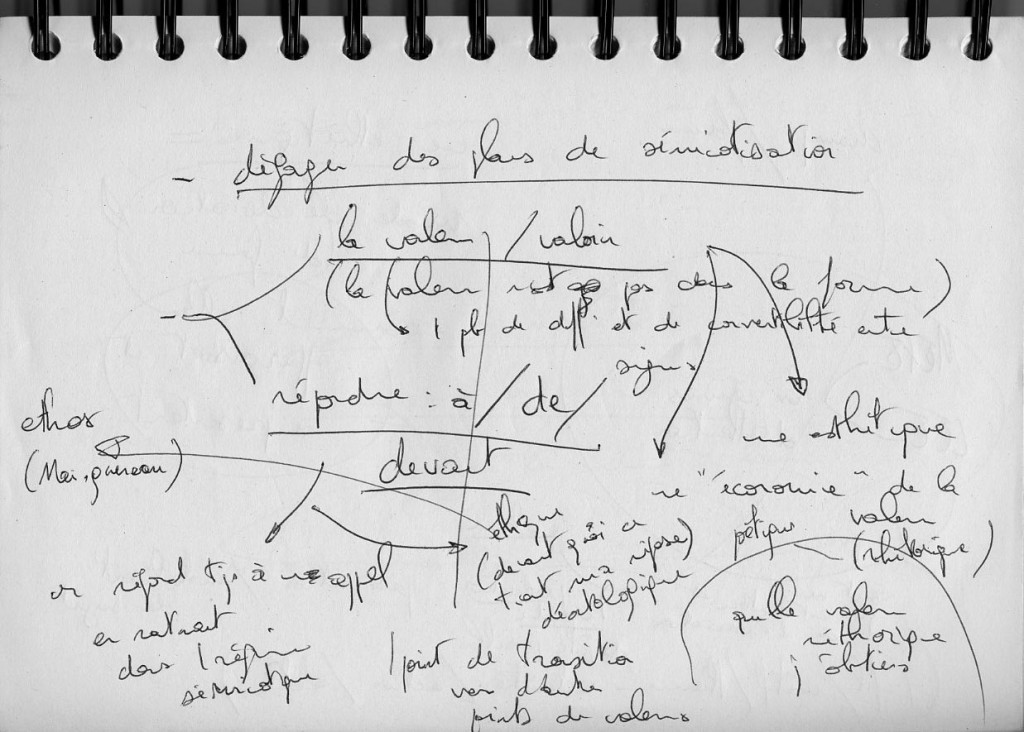 - dégager des plans de sémiotisation
la valeur / valoir
(la valeur n'est pas dans la forme)
1 pb de diff. et de convertibilité entre
signes
répondre : à / de /
devant
ethos
(Maingueneau)
une esthétique
une "économie" de la
valeur
(rhétorique)
poétique
éthique
(devant quoi ce
tient ma réponse)
déontologique
on répond tjs à un appel
en entrant
dans 1 régime
sémiotique
1 point de transition
vers d'autres
points de valeurs
quelle valeur
réthorique
j'obtiens